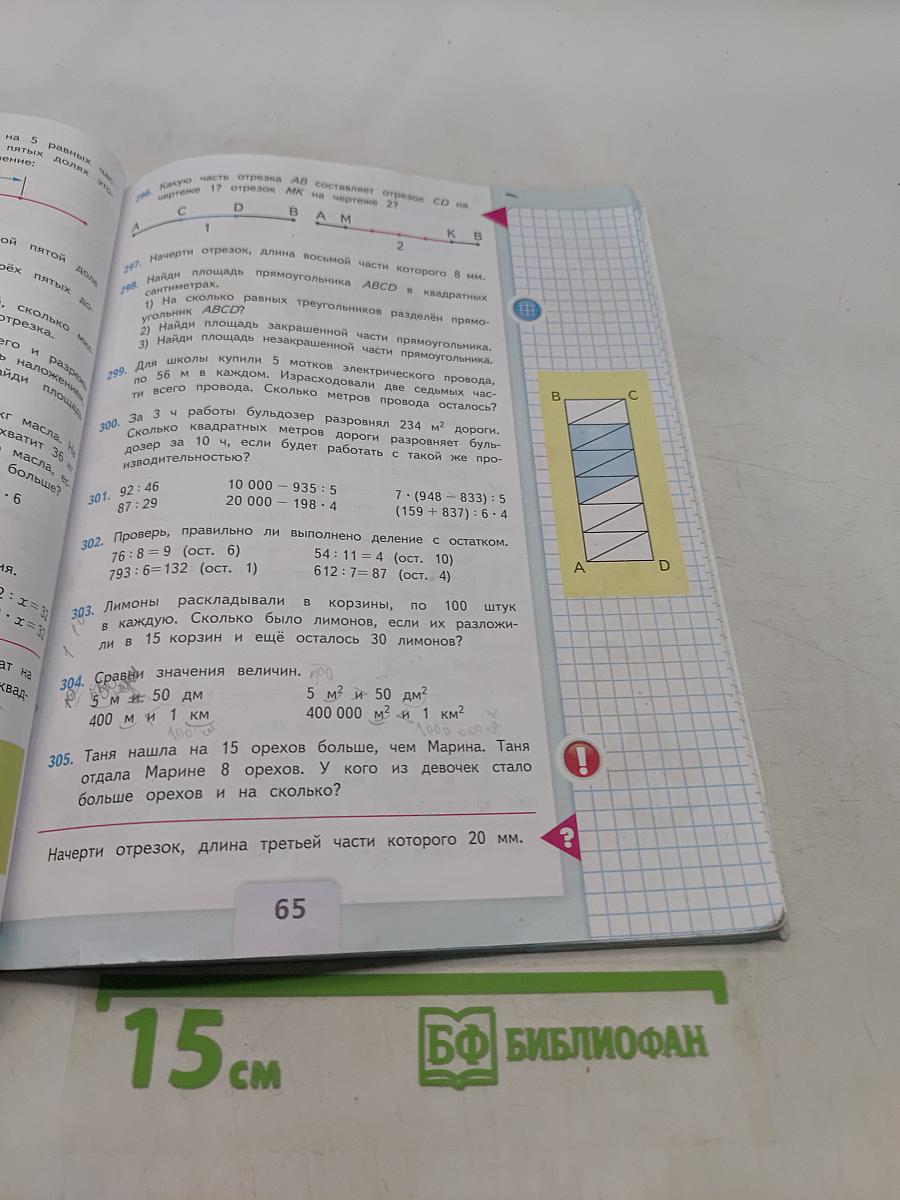 на 5 равных час-
пятых долях
ение:
ой пятой доле
рёх пятых до-
, сколько
отрезка.
его и разреж
ь наложением
айди площадь
кг масла. На
хватит 36 кг
масла, ес-
больше?
· 6
ия.
2 : x = 32
· x = 32
ат на
квад-
296. Какую часть отрезка AB составляет отрезок CD на
чертеже 1? отрезок MK на чертеже 2?
A C D B A M K B
1 2
297. Начерти отрезок, длина восьмой части которого 8 мм.
298. Найди площадь прямоугольника ABCD в квадратных
сантиметрах.
1) На сколько равных треугольников разделён прямо-
угольник ABCD?
2) Найди площадь закрашенной части прямоугольника.
3) Найди площадь незакрашенной части прямоугольника.
299. Для школы купили 5 мотков электрического провода,
по 56 м в каждом. Израсходовали две седьмых час-
ти всего провода. Сколько метров провода осталось?
300. За 3 ч работы бульдозер разровнял 234 м² дороги.
Сколько квадратных метров дороги разровняет буль-
дозер за 10 ч, если будет работать с такой же про-
изводительностью?
301. 92 : 46 10 000 − 935 : 5 7 · (948 − 833) : 5
87 : 29 20 000 − 198 · 4 (159 + 837) : 6 · 4
302. Проверь, правильно ли выполнено деление с остатком.
76 : 8 = 9 (ост. 6) 54 : 11 = 4 (ост. 10)
793 : 6 = 132 (ост. 1) 612 : 7 = 87 (ост. 4)
303. Лимоны раскладывали в корзины, по 100 штук
в каждую. Сколько было лимонов, если их разложи-
ли в 15 корзин и ещё осталось 30 лимонов?
304. Сравни значения величин. 500
5 м и 50 дм 5 м² и 50 дм²
400 м и 1 км 400 000 м² и 1 км²
305. Таня нашла на 15 орехов больше, чем Марина. Таня
отдала Марине 8 орехов. У кого из девочек стало
больше орехов и на сколько?
Начерти отрезок, длина третьей части которого 20 мм.
65
B C
A D
!
?
15 см
БФ БИБЛИОФАН